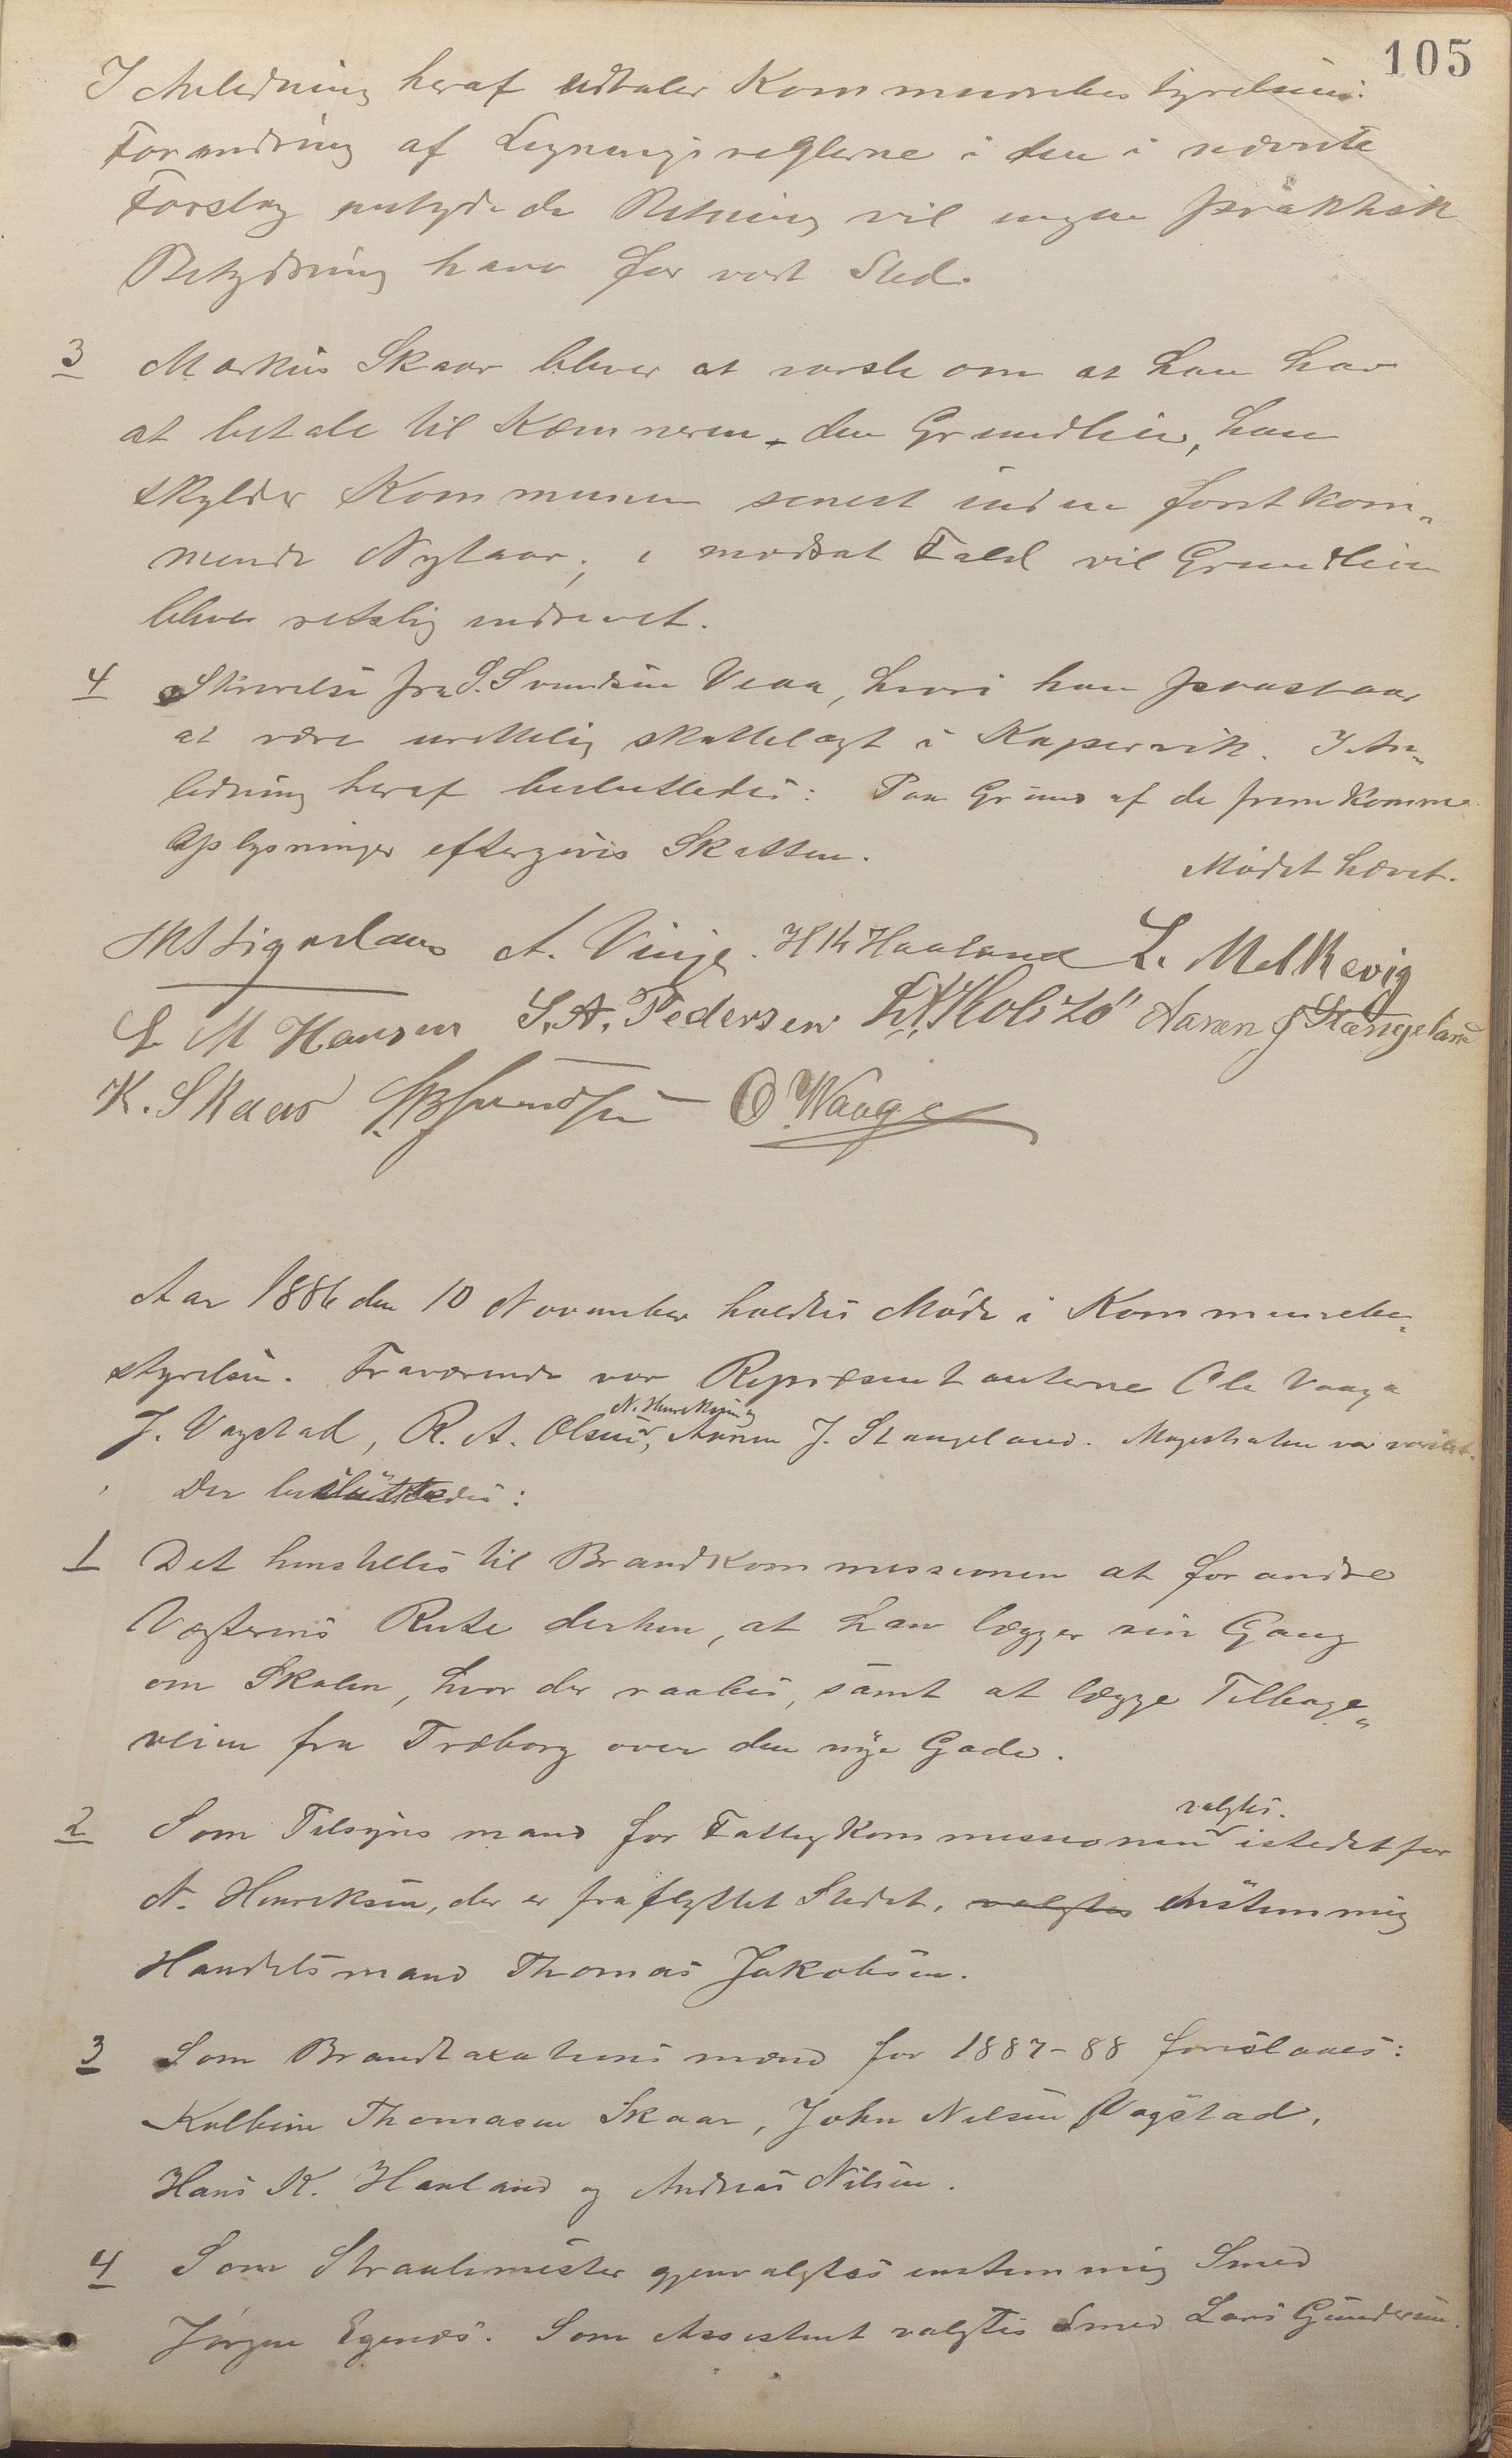 105
I Anledning heraf udtaler Kommunebestyrelsen:
Forandring af Ligningsreglerne i den i nævnte
Forslag antydede Retning vil ingen praktisk
Betydning have for vort Sted.
3 Markus Skaar bliver at varsle om at han har
at betale til Kæmneren den Grundleie, han
skylder Kommunen senest inden først kom„
mende Nytaar; i modsat Fald vil Grundleien
blive retslig inddrevet.
4 Skrivelse fra S. Svendsen Veaa, hvori han paastaar
at være urettelig skattelagt i Kopervik. I An„
ledning heraf besluttedes: Paa Grund af de fremkomne
Oplysninger eftergives Skatten.
Mødet hævet.
A. Vinje. H K Haaland L. Melkevig
L M Hansen S. A. Pedersen Aanen J Stangeland
K. Skaar O. Waage
Aar 1886 den 10 November holdtes Möde i Kommunebe„
styrelsen. Fraværende var Repræsentanterne Ole Vaage
N. Henriksen og
J. Vagstad, R. A. Olsen, Aanen J. Stangeland. Magistraten var varslet.
Der besluttedes:
1 Det henstilles til Brandkommissionen at forandre
Vægterens Rute derhen, at han lægger sin Gang
om Skolen, hvor der raabes, samt at lægge Tilbage„
veien fra Træborg over den nye Gade.
valgtes.
2 Som Tilsynsmand for Fattigkommissionen istedetfor
N. Henriksen, der er fraflyttet Stedet, valgtes enstemmig
Handelsmand Thomas Jakobsen.
3 Som Brandtaxationsmænd for 1887-88 foreslaaes:
Kolbein Thomasen Skaar, John Nilsen Vagstad,
Hans K. Haaland og Andreas Nilsen.
4 Som Straalemester gjenvalgtes enstemmig Smed
Jørgen Egenæs. Som Assistent valgtes Smed Lars Gundersen.